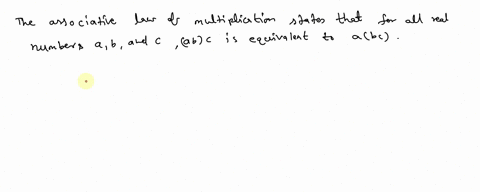 The associative law of multiplication states that for all real
numbers a, b, and c , (ab) c is equivalent to a(bc) .